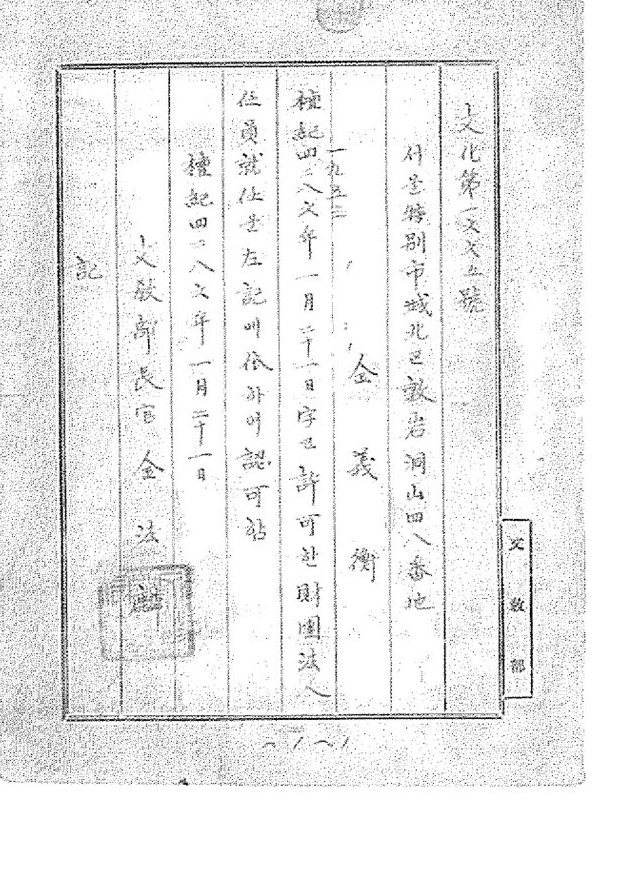 文化第一六六五號
서울特別市城北區敦岩洞山四八番地
金義衡
一九五三
檀紀四二八六年一月二十一日字로許可한財團法人
任員就任을左記에依하여認可함
檀紀四二八六年一月二十一日
文敎部長官金法麟
記
文敎部